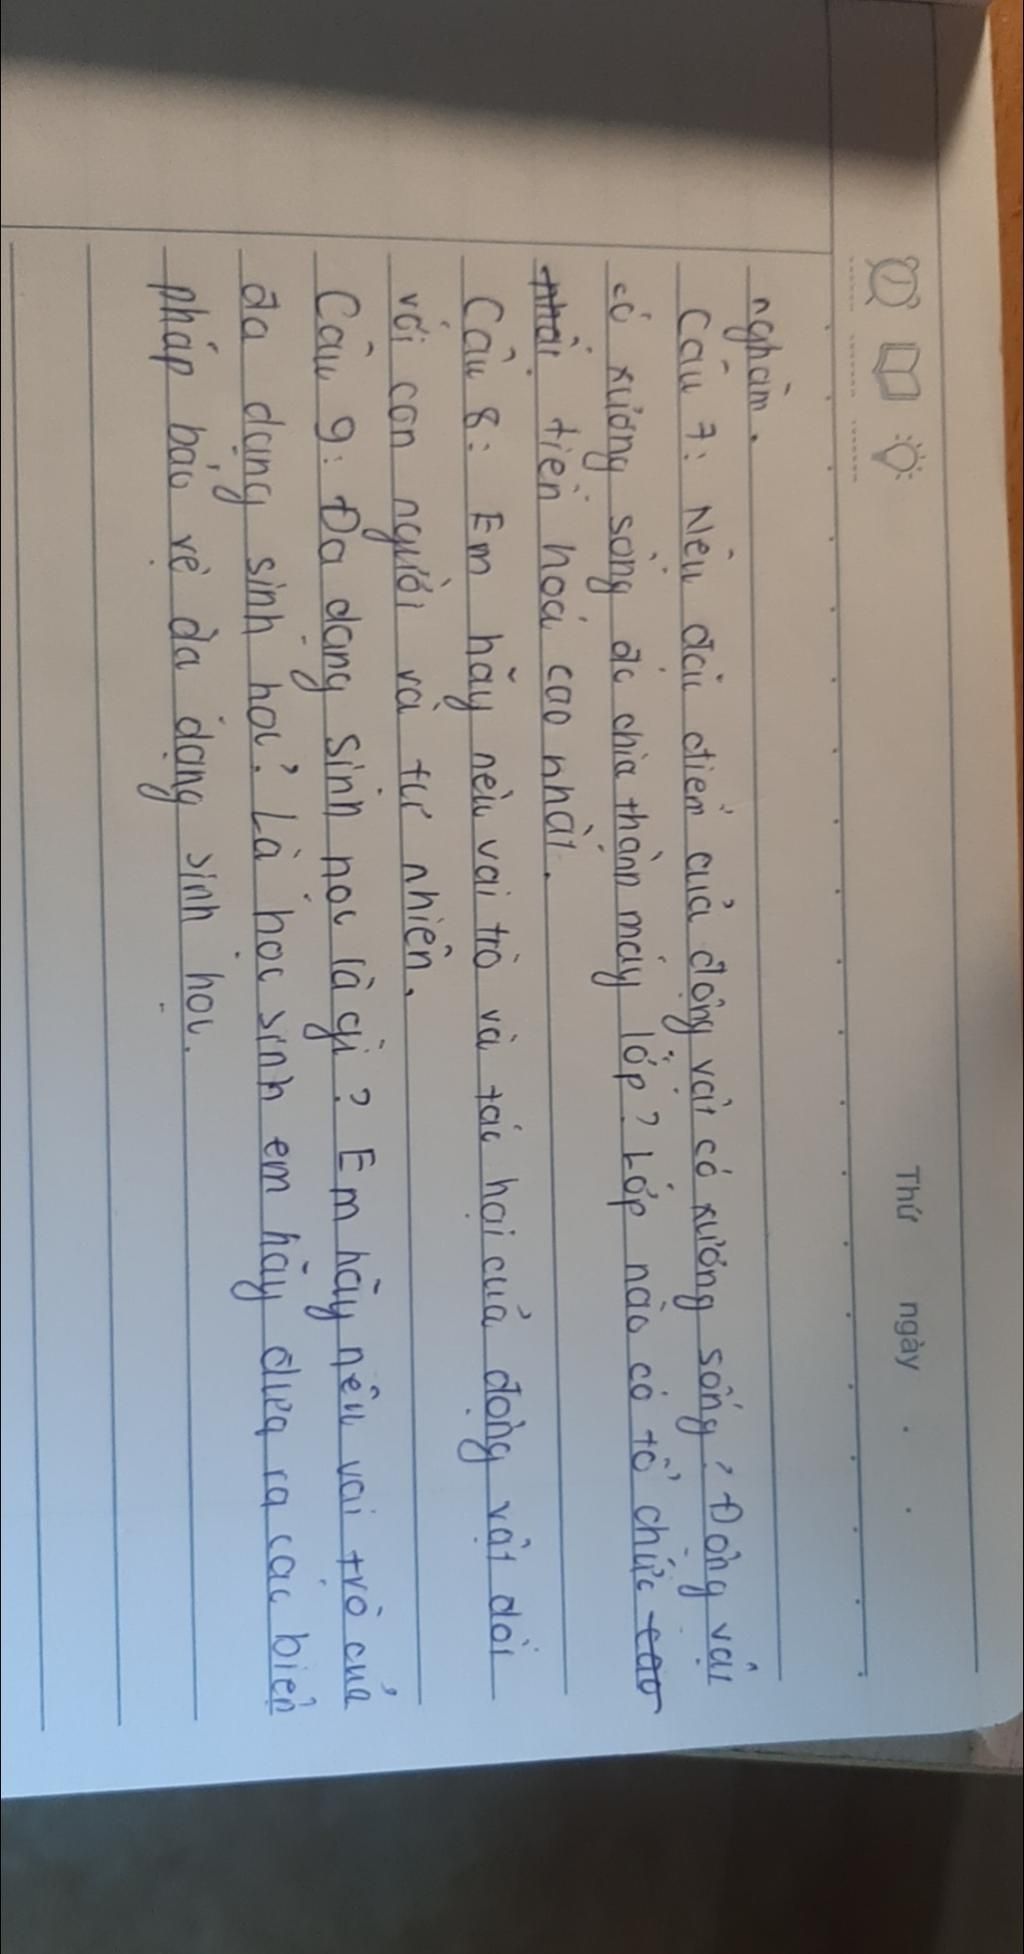 Thứ ngày . .
nghàm.
Câu 7: Nêu đặc điểm của động vật có xương sống? Động vật
có xương sống đc chia thành mấy lớp? Lớp nào có tổ chức cao
nhất tiến hoá cao nhất.
Câu 8: Em hãy nêu vai trò và tác hại của động vật đối
với con người và tự nhiên.
Câu 9: Đa dạng sinh học là gì? Em hãy nêu vai trò của
đa dạng sinh học? Là học sinh em hãy đưa ra các biện
pháp bảo vệ đa dạng sinh học.